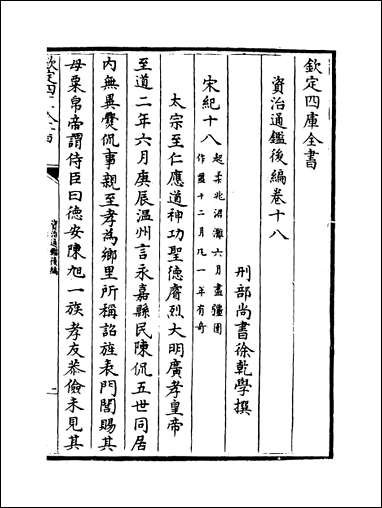 欽定四庫全書
資治通鑑後編卷十八
刑部尚書徐乾學撰
宋紀十八
起柔兆涒灘六月盡彊圉
作噩十二月凡一年有奇
太宗至仁應道神功聖德睿烈大明廣孝皇帝
至道二年六月庚辰温州言永嘉縣民陳侃五世同居
内無異爨侃事親至孝為鄉里所稱詔旌表門閭賜其
母粟帛帝謂侍臣曰德安陳旭一族孝友恭儉未見其
欽定四庫全書
資治通鑑後編